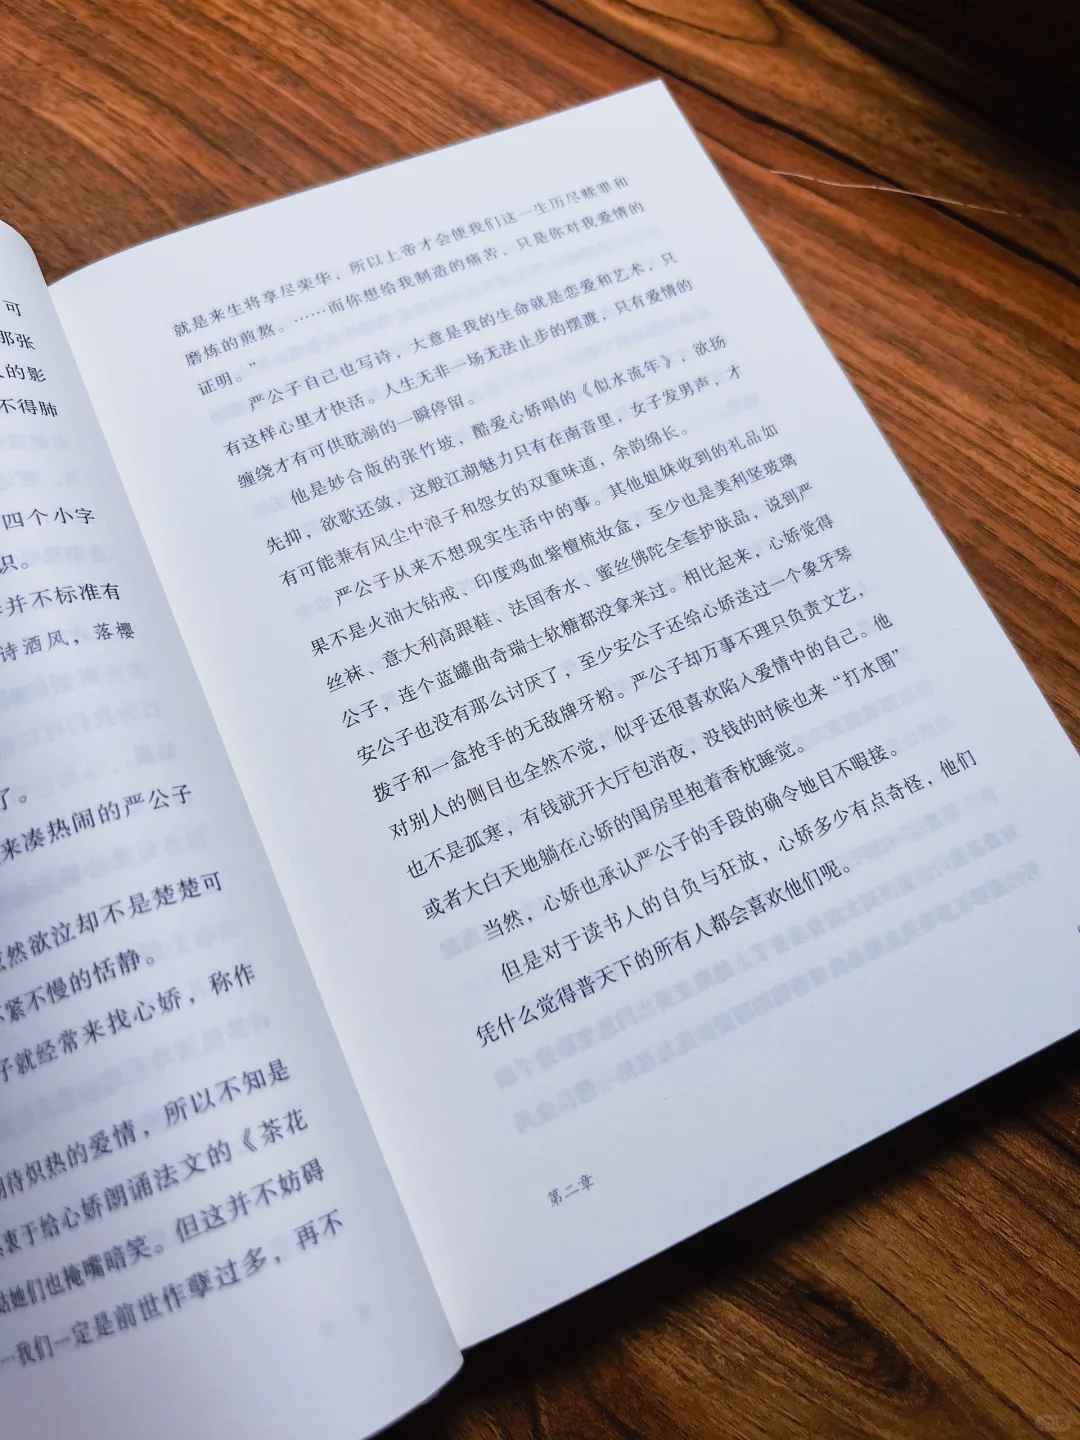 可
那张
的影
不得肺
四个小字
识。
并不标准有
诗酒风，落樱
了。
来凑热闹的严公子
然欲泣却不是楚楚可
紧不慢的恬静。
子就经常来找心娇，称作
待炽热的爱情，所以不知是
衷于给心娇朗诵法文的《茶花
她们也掩嘴暗笑。但这并不妨碍
…我们一定是前世作孽过多，再不
就是来生将享尽荣华，所以上帝才会使我们这一生历尽赎罪和
磨炼的煎熬。……而你想给我制造的痛苦，只是你对我爱情的
证明。”
严公子自己也写诗，大意是我的生命就是恋爱和艺术，只
有这样心里才快活。人生无非一场无法止步的摆渡，只有爱情的
缠绕才有可供耽溺的一瞬停留。
他是妙合版的张竹坡，酷爱心娇唱的《似水流年》，欲扬
先抑，欲歌还敛，这般江湖魅力只有在南音里，女子发男声，才
有可能兼有风尘中浪子和怨女的双重味道，余韵绵长。
严公子从来不想现实生活中的事。其他姐妹收到的礼品如
果不是火油大钻戒、印度鸡血紫檀梳妆盒，至少也是美利坚玻璃
丝袜、意大利高跟鞋、法国香水、蜜丝佛陀全套护肤品，说到严
公子，连个蓝罐曲奇瑞士软糖都没拿来过。相比起来，心娇觉得
安公子也没有那么讨厌了，至少安公子还给心娇送过一个象牙琴
拨子和一盒抢手的无敌牌牙粉。严公子却万事不理只负责文艺，
对别人的侧目也全然不觉，似乎还很喜欢陷入爱情中的自己。他
也不是孤寒，有钱就开大厅包消夜，没钱的时候也来“打水围”
或者大白天地躺在心娇的围房里抱着香枕睡觉。
当然，心娇也承认严公子的手段的确令她目不暇接。
但是对于读书人的自负与狂放，心娇多少有点奇怪，他们
凭什么觉得普天下的所有人都会喜欢他们呢。
第二章